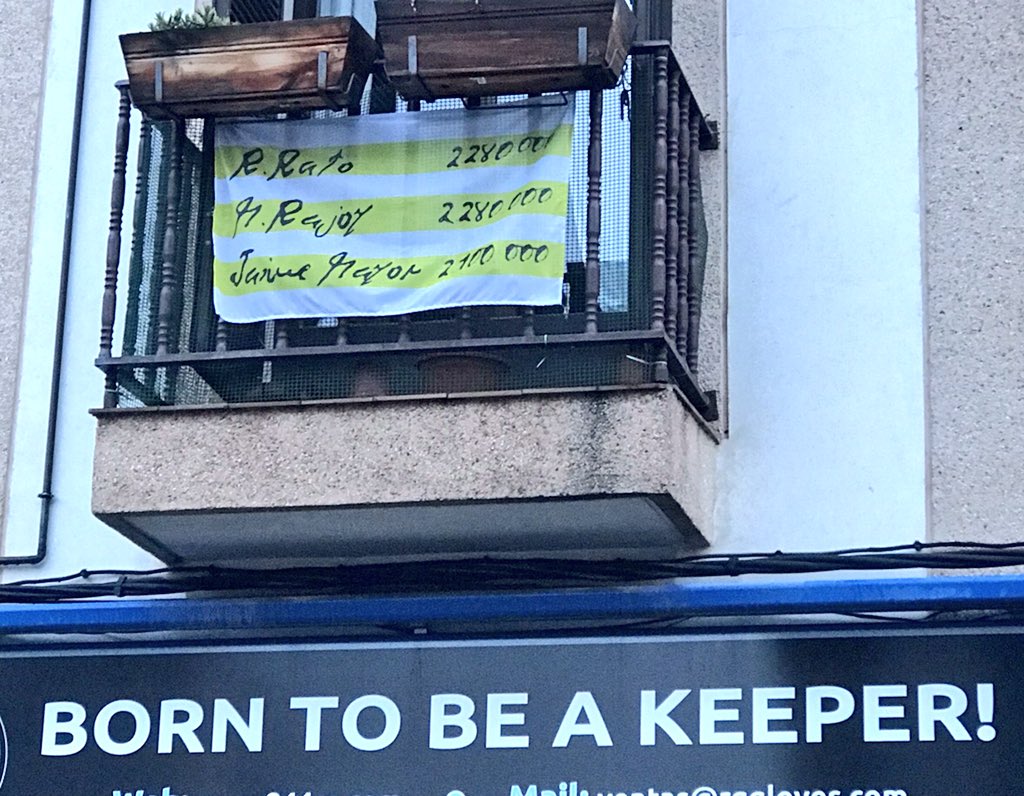 R. Rato 2280000
M. Rajoy 2280100
Jaime Mayor 2100 000
BORN TO BE A KEEPER!
Web:
Mail: ventas@rggloves.com